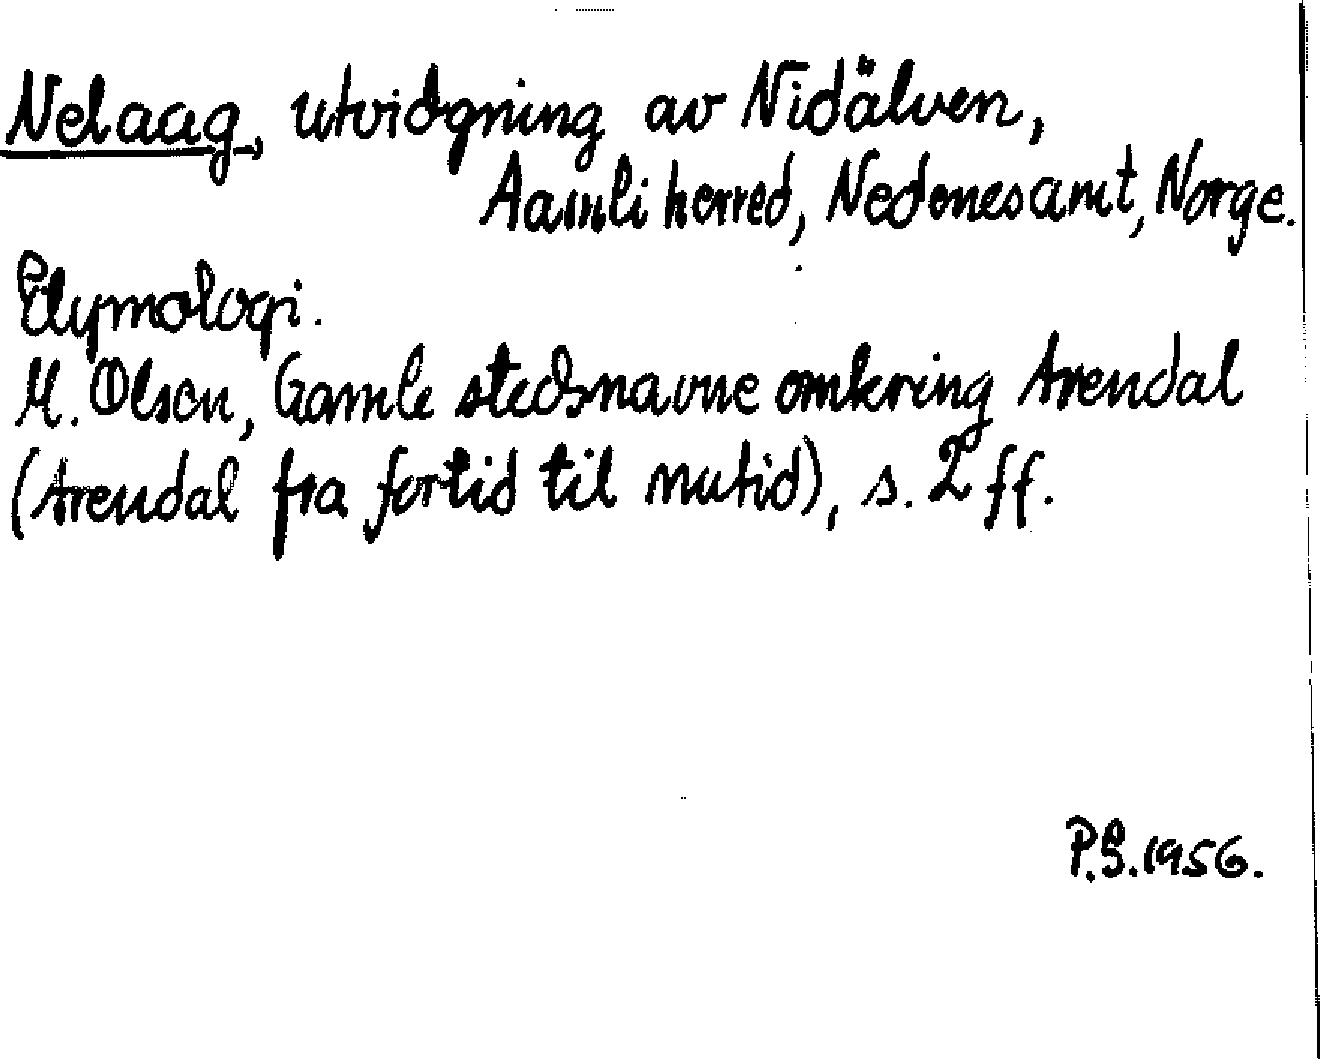 Nelaag, utvidgning av Nidälven,
Aamli herred, Nedenesamt, Norge.
Etymologi.
M. Olsen, Gamle stedsnavne omkring Arendal
(Arendal fra fortid til nutid), s. 2 ff.
P.S. 1956.